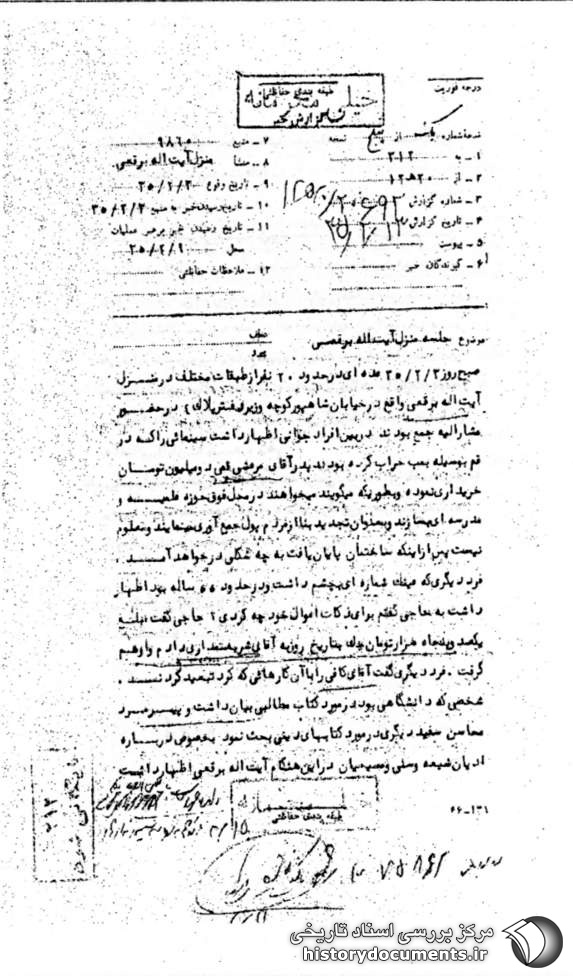 درجه فوریت
طبقه بندی حفاظتی
خیلی محرمانه
گزارش خبر
نسخه شماره یک از پنج نسخه
۱ ـ به ۳۱۲
۲ ـ از ۲۰ ه ۱۲
۳ ـ شماره گزارش
۴ ـ تاریخ گزارش
۵ ـ پیوست
۶ ـ گیرندگان خبر
۷ ـ منبع ۹۸۶۰
۸ ـ منشاء منزل آیت اله برقعی
۹ ـ تاریخ وقوع ۳۵/۲/۲
۱۰ ـ تاریخ رسیدن خبر به منبع ۳۵/۲/۲
۱۱ ـ تاریخ رسیدن خبر برهبر عملیات
محل ۳۵/۲/۹
۱۲ ـ ملاحظات حفاظتی
موضوع جلسه منزل آیت اله برقعی
عطف
پیرو
صبح روز ۳۵/۲/۲ عده ای در حدود ۲۰ نفر از طبقات مختلف در منزل
آیت اله برقعی واقع در خیابان شاهپور کوچه وزیر دفتر پلاک ۴ در حضور
مشارالیه جمع بودند در بین افراد جوانی اظهار داشت سینمائی را که در
قم بوسیله بمب خراب کرده بودند پدر آقای مرعشی قمی دو میلیون تومان
خریداری نموده و بطوریکه میگویند میخواهند در محل فوق حوزه علمیه و
مدرسه ای بسازند و بعنوان تجدید بنا از مردم پول جمع آوری مینمایند و معلوم
نیست پس از اینکه ساختمان پایان یافت به چه شکلی در خواهد آمد .
فرد دیگری که عینک شماره ای بچشم داشت و در حدود ۵۵ ساله بود اظهار
داشت به حاجی گفتم برای ذکات اموال خود چه کردی ؟ حاجی گفت مبلغ
یکصد و پنجاه هزار تومان چک بتاریخ روز به آقای شریعتمداری دادم و او هم
گرفت . فرد دیگری گفت آقای کافی را با آن کارهائی که کرد تبعید کردند .
شخصی که دانشگاهی بود در مورد کتاب مطالبی بیان داشت و پیرمرد
محاسن سفید دیگری در مورد کتابهای دینی بحث نمود بخصوص درباره
ادیان شیعه و سنی و مسیحیان در این هنگام آیت اله برقعی اظهار داشت
طبقه بندی حفاظتی
۳۱۲
مرکز بررسی اسناد تاریخی
historydocuments.ir